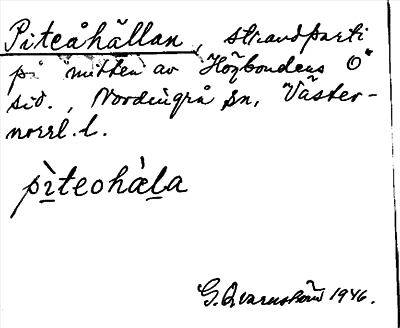 Piteåhällan, strandparti
på mitten av Högbondens O
sid., Nordingrå sn, Väster-
norrl. l.
pìteohæ̀la
G. Qvarnström 1946.